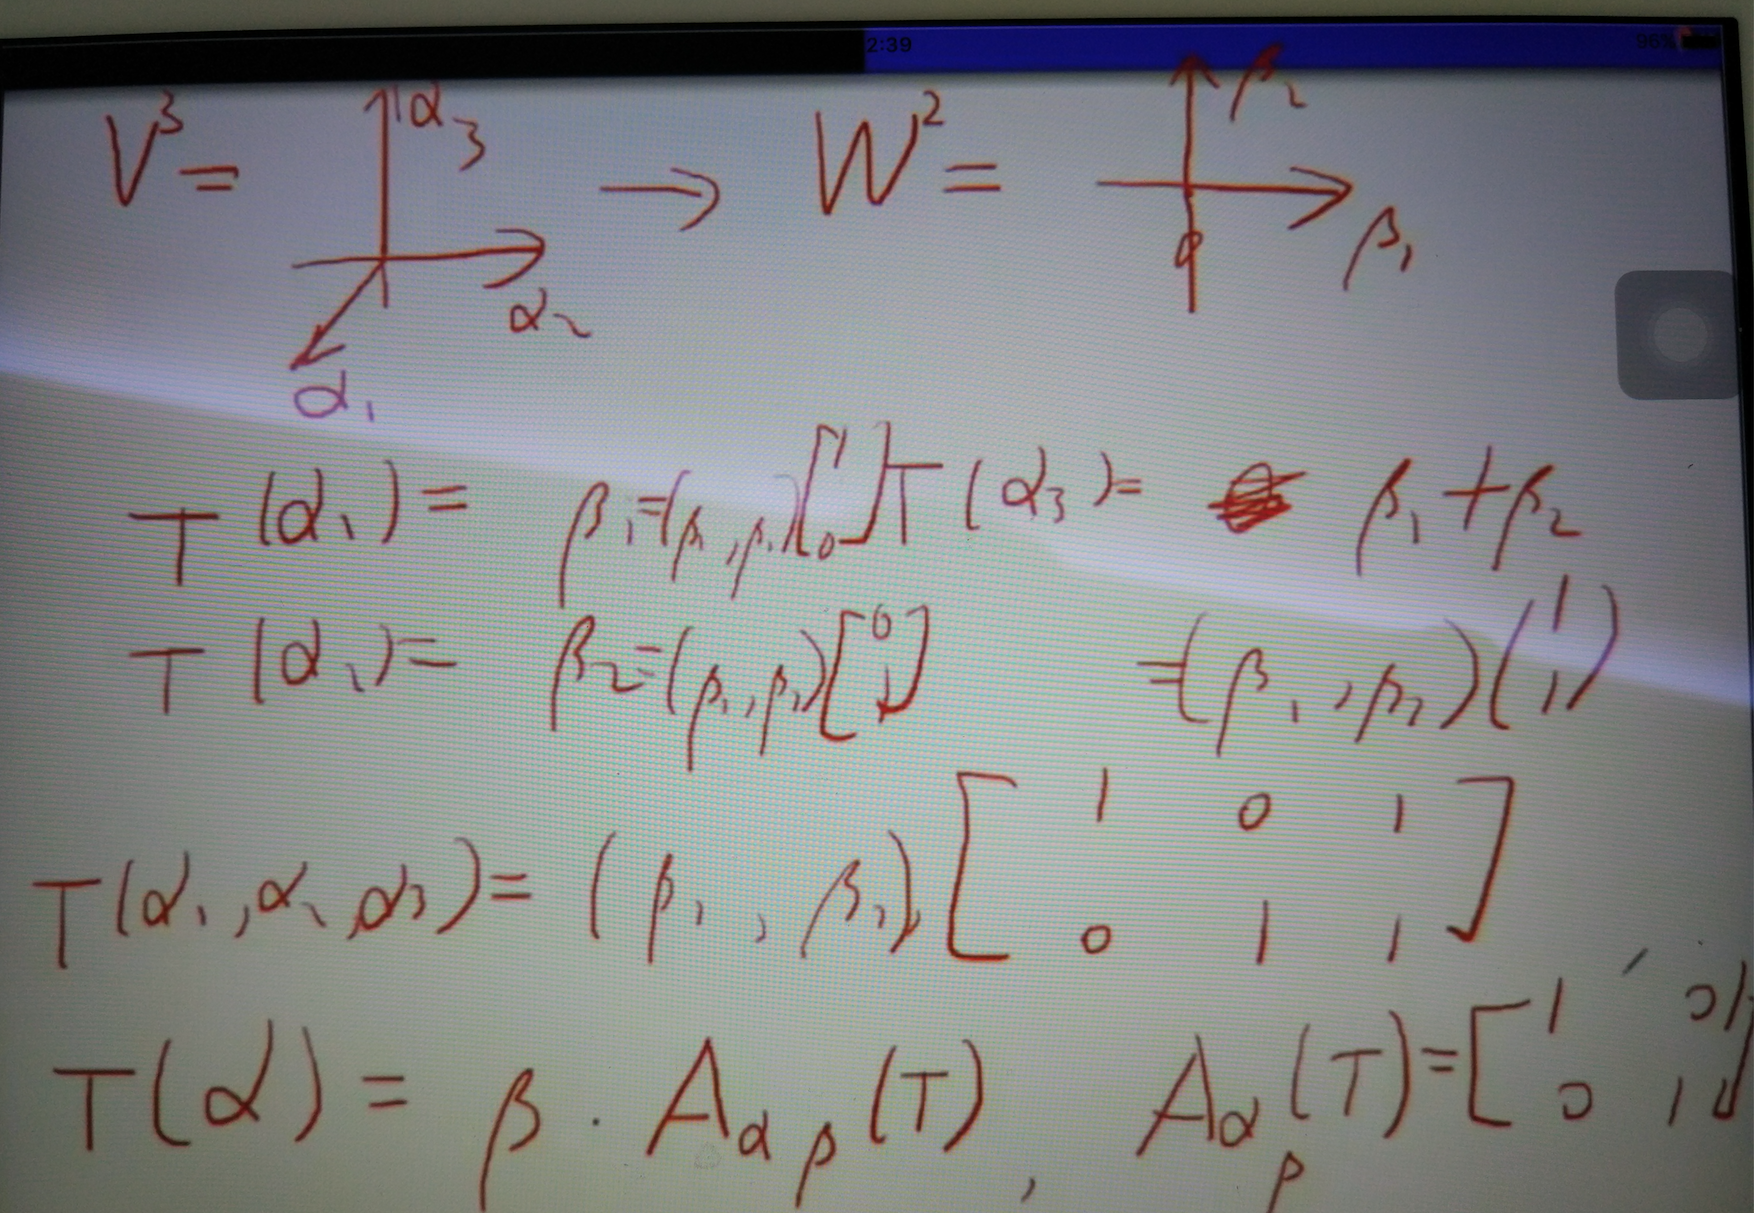 2:39 96%
V³ = α₃ α₂ α₁ → W² = β₂ β₁
T(α₁) = β₁ = (β₁, β₂)[1 0] T(α₃) = β₁ + β₂
T(α₂) = β₂ = (β₁, β₂)[0 1] = (β₁, β₂)(1 1)
T(α₁, α₂, α₃) = (β₁, β₂) [1 0 1
0 1 1]
T(α) = β · A_αβ(T), A_αβ(T) = [1 0 1
0 1 1]